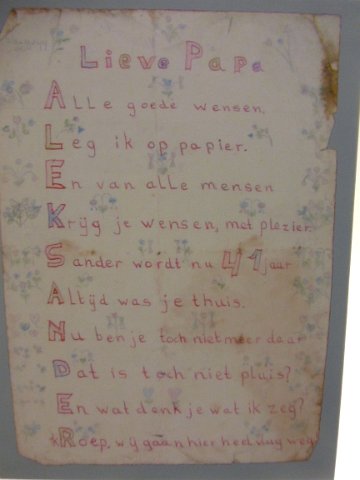 Lieve Papa
Alle goede wensen,
Leg ik op papier.
En van alle mensen
Krijg je wensen, met plezier.
Sander wordt nu 41 jaar
Altijd was je thuis.
Nu ben je toch niet meer daar
Dat is toch niet pluis?
En wat denk je wat ik zeg?
Roep, wij gaan hier heel dug weg